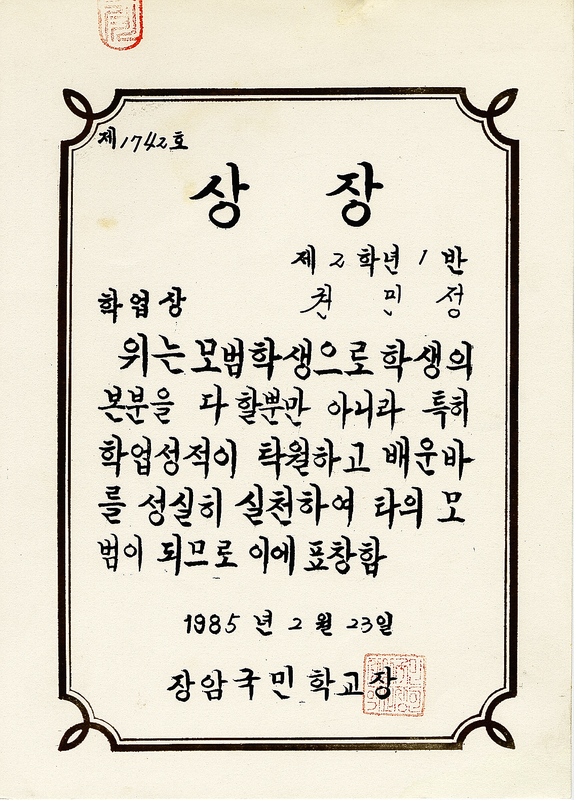 제1742호
상 장
제 2 학년 1 반
학업상 권 민 정
위는 모범학생으로 학생의
본분을 다 할뿐만 아니라 특히
학업성적이 탁월하고 배운바
를 성실히 실천하여 타의 모
범이 되므로 이에 표창함
1985 년 2 월 23일
장암국민학교장